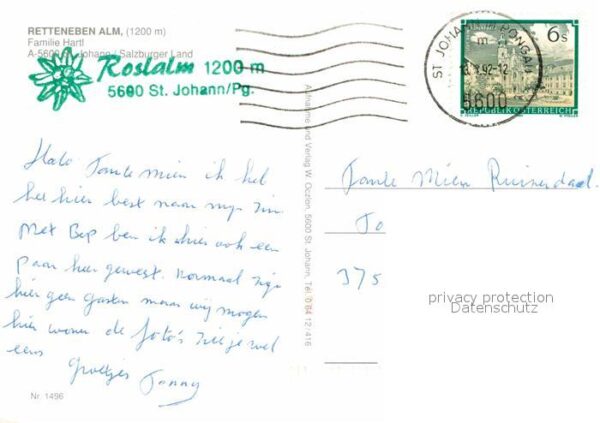 RETTENEBEN ALM, (1200 m)
Familie Hartl
A-5600 St. Johann / Salzburger Land
Roslalm 1200 m
5600 St. Johann/Pg.
ST. JOHANN IM PONGAU
m
92-12
5600
6s
REPUBLIK ÖSTERREICH
Halo Tante Mien ik heb
het hier best naar mijn zin
Met Bep ben ik hier ook een
paar keer geweest. Normaal zijn
hier geen gasten maar wij mogen
hier wonen de foto's zie je wel
eens
Groetjes Jonny
Nr. 1496
Aufnahme und Verlag W. Oczlon, 5600 St. Johann, Tel. 0 64 12 - 416
Tante Mien Ruinerdaal
To
375
privacy protection
Datenschutz